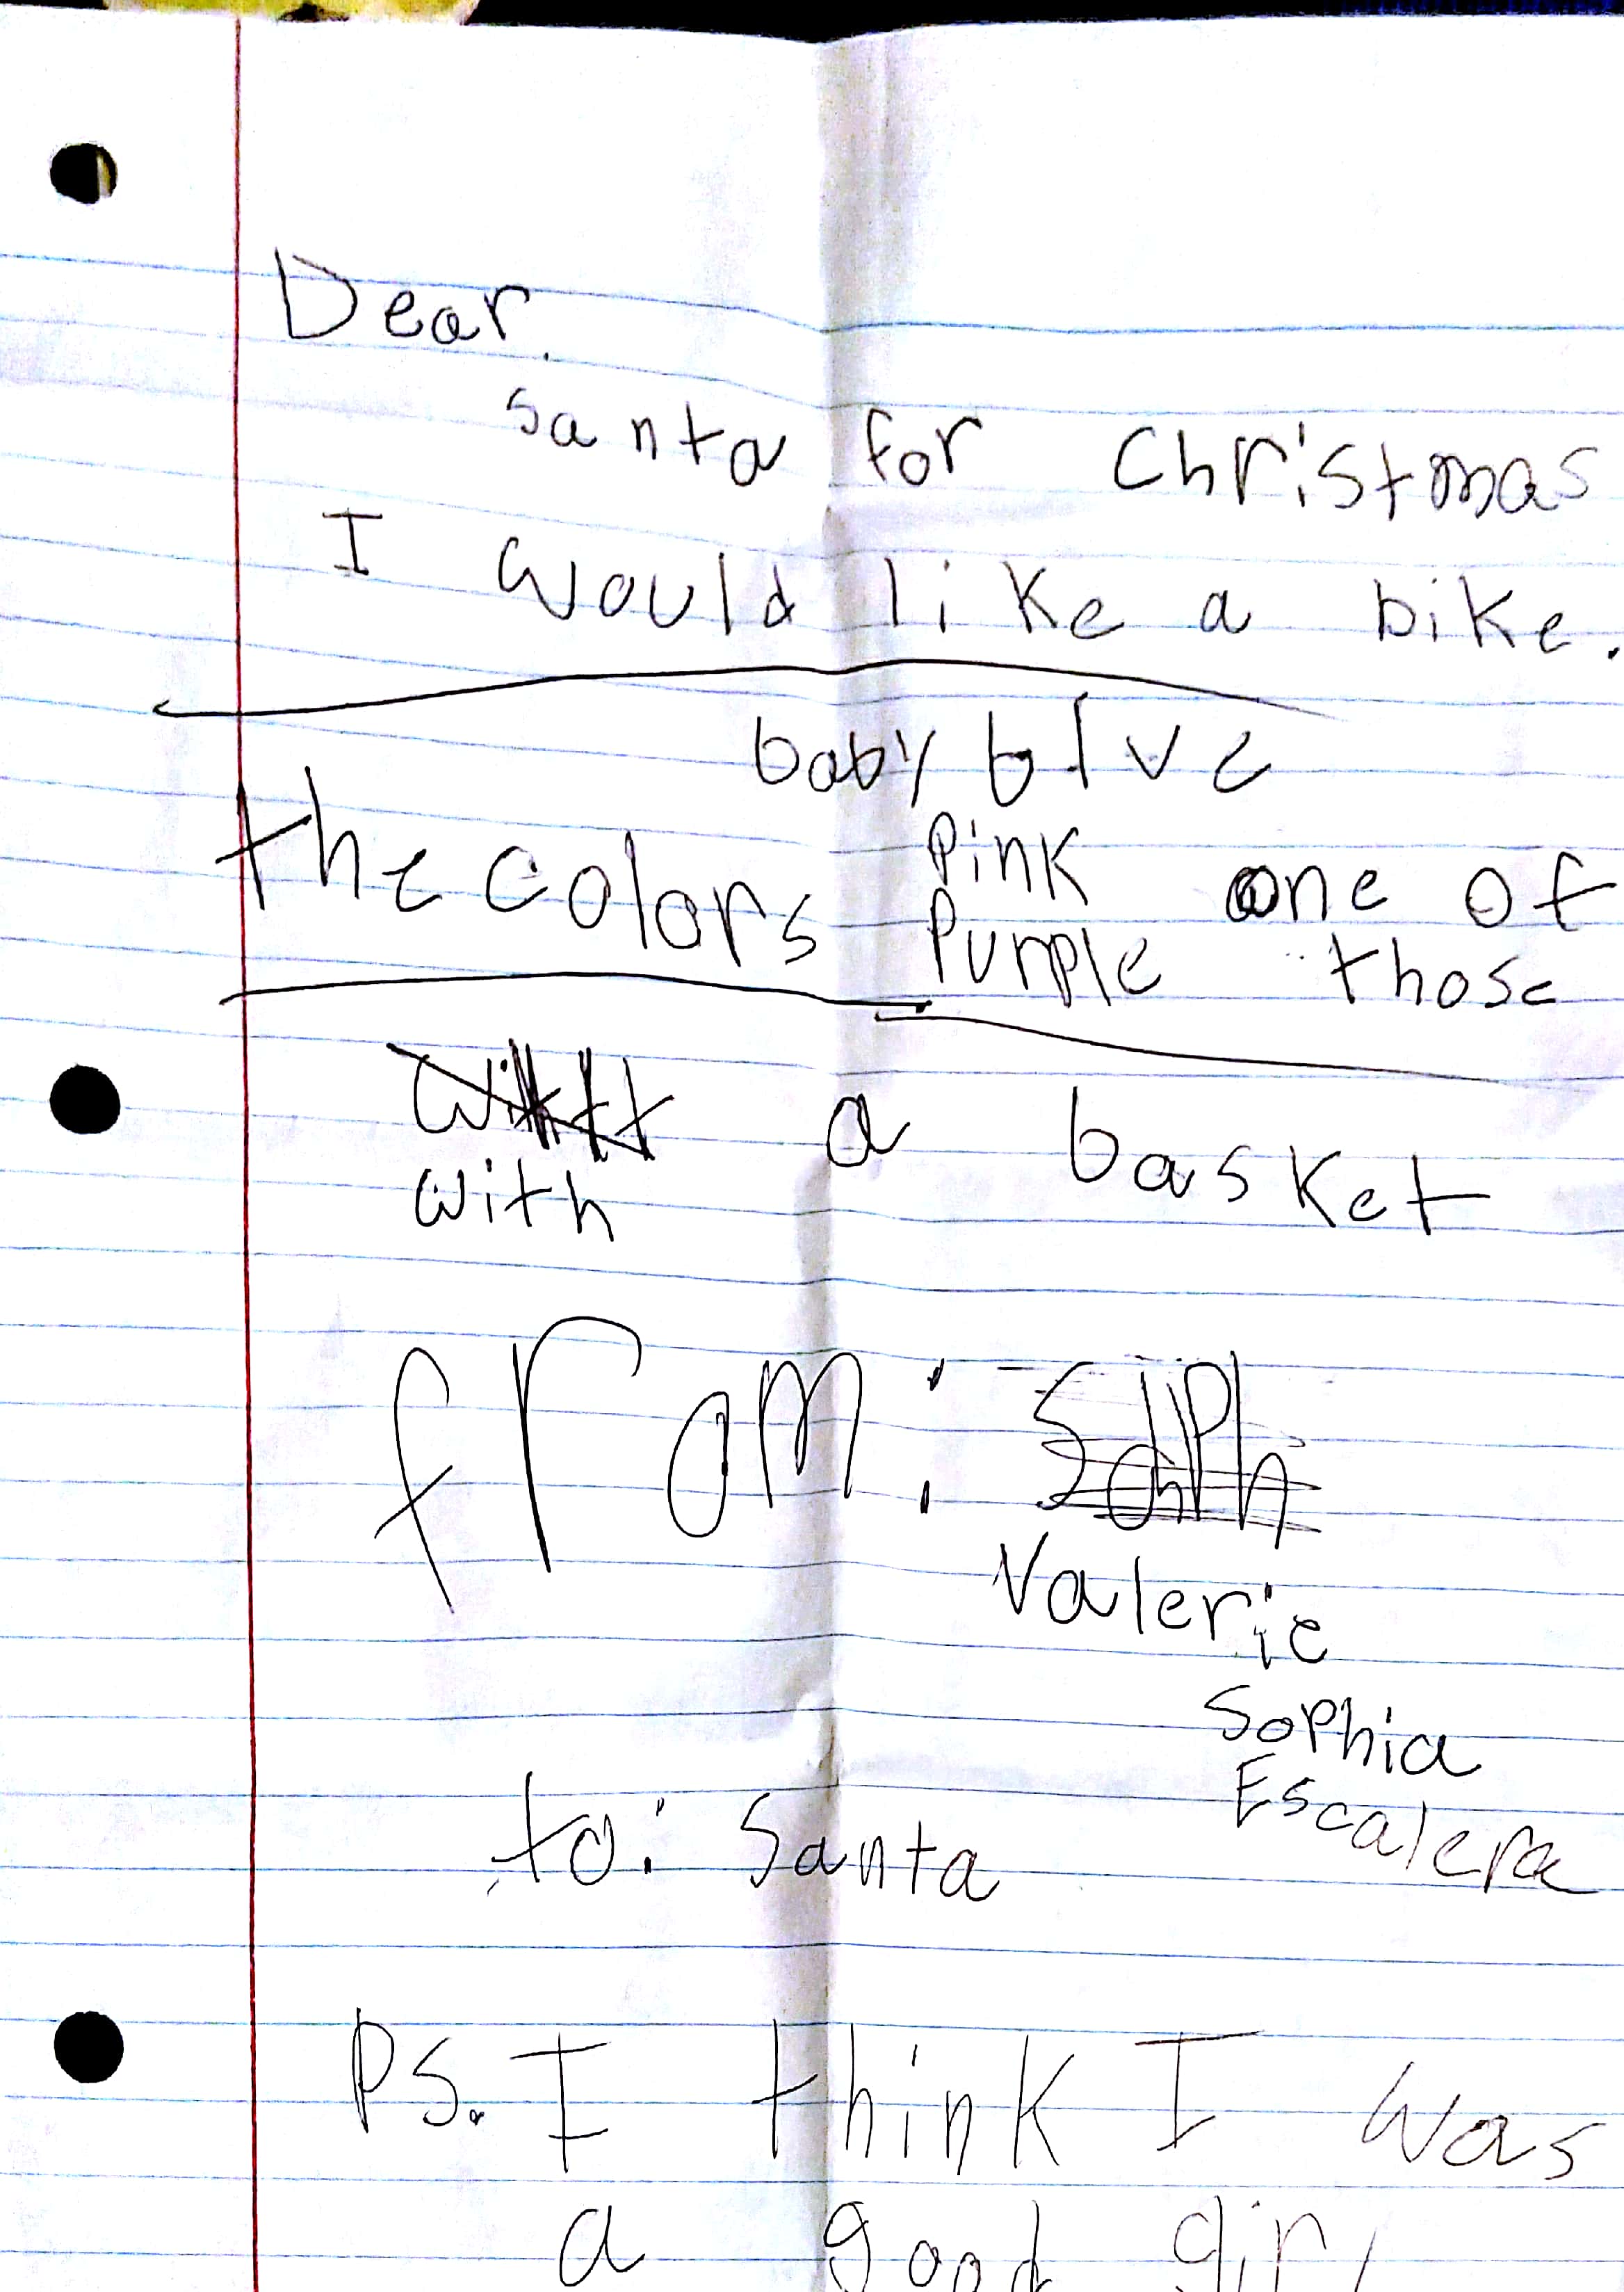 Dear.
santa for christmas
I would like a bike.
baby blue
the colors Pink one of
Purple those
a basket
with
from:
Valerie
Sophia
Escalera
to: Santa
PS. I think I was
a good girl